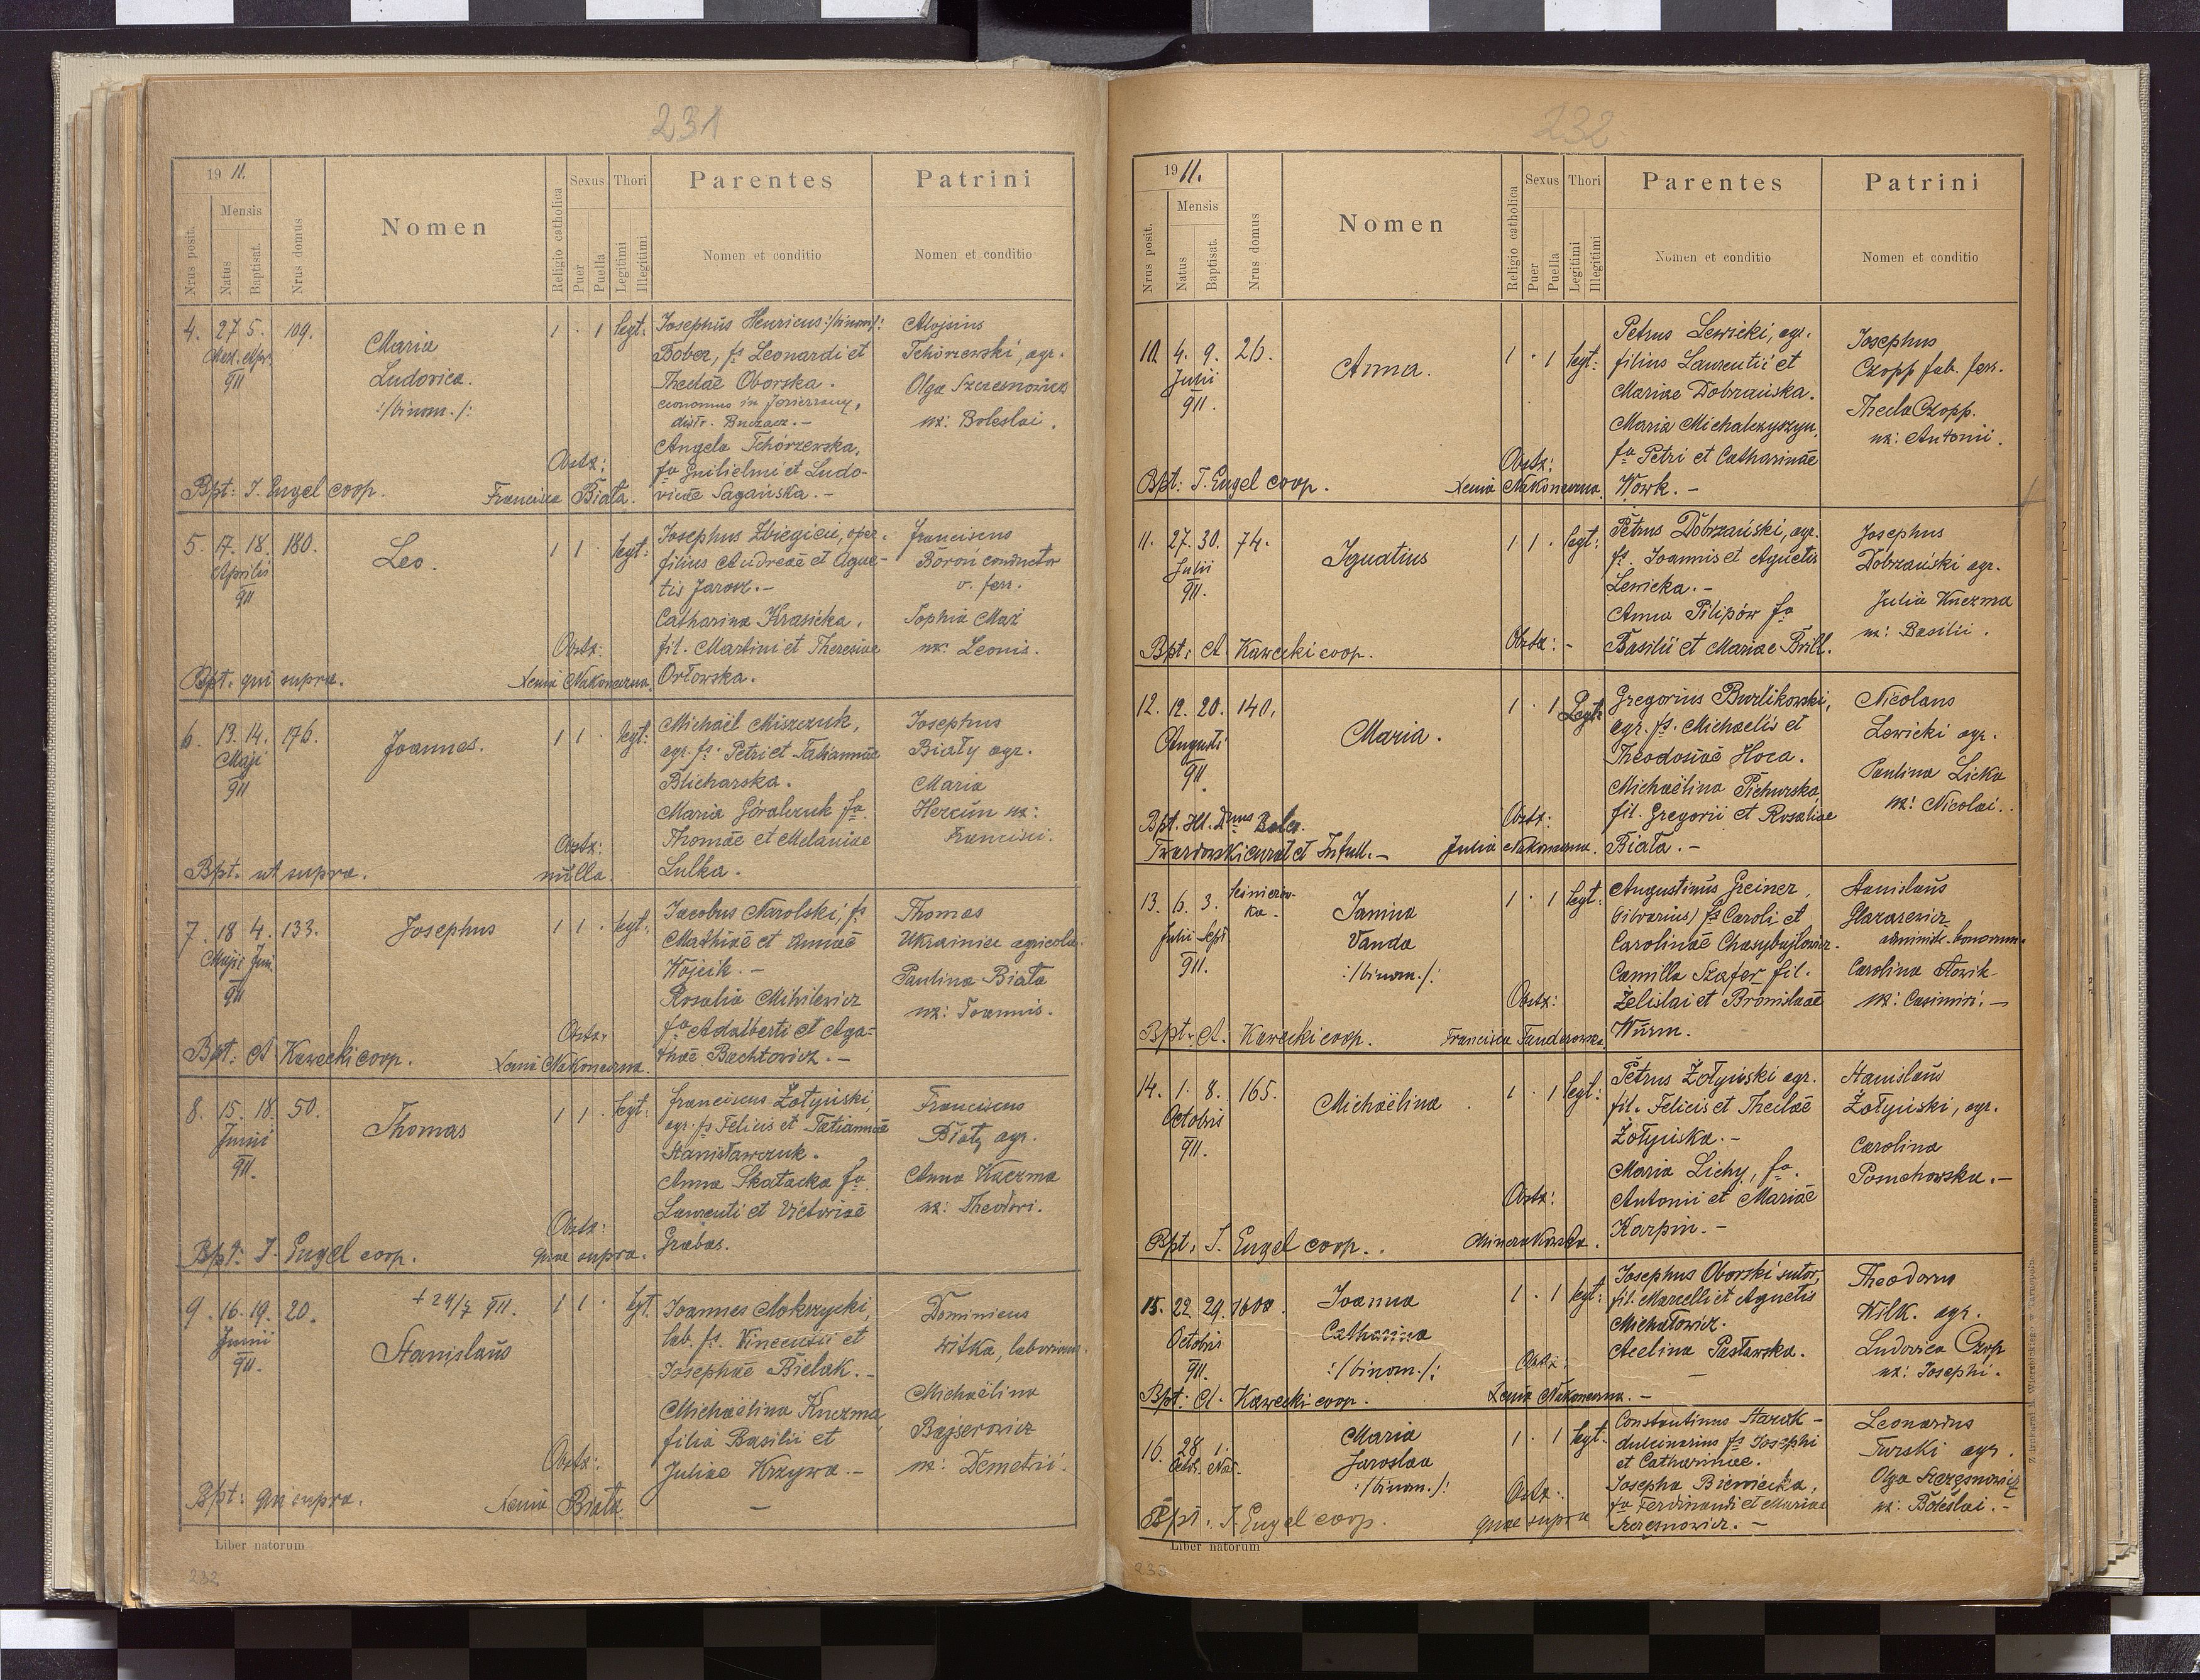 231
19 11.
Nrus posit.
Mensis
Natus
Baptisat.
Nrus domus
Nomen
Religio catholica
Sexus
Puer
Puella
Thori
Legitimi
Illegitimi
Parentes
Nomen et conditio
Patrini
Nomen et conditio
4. 27 5. 109.
Mart. Apr.
911
Maria
Ludovica.
:/binom./:
1 · 1 legt:
Josephus Henricus :/binom/:
Bober, fs Leonardi et
Theclae Oborska.
economus in Jezierzany,
distr. Buczacz.-
Angela Tchórzewska,
fa Guilielmi et Ludo-
vicae Sagańska.-
Aloisius
Tchórzewski, agr.
Olga Szczęsnowicz
ux: Boleslai.
Obstz:
Bpt: J. Engel coop.
Francisca Biała.
5. 17. 18. 180.
Aprilis
911
Leo.
1 1 · legt:
Josephus Zbiegień, oper.
filius Andreae et Agne-
tis Jarosz.-
Catharina Krasicka,
fil. Martini et Theresiae
Orłowska.
Franciscus
Boroń conductor
v. ferr.
Sophia Maź
ux: Leonis.
Obstz:
Bpt. qui supra.
Xenia Nakoneczna.
6. 13. 14. 176.
Maji
911
Joannes.
1 1 · legt:
Michaël Miszczuk,
agr. fs: Petri et Tatiannae
Blicharska.
Maria Góralczuk fa
Thomae et Melaniae
Lulka.
Josephus
Biały agr.
Maria
Hercün ux:
Francisci.
Obstz:
nulla.
Bpt. ut supra.
7. 18 4. 133.
Maji Juni.
911
Josephus
1 1 · legt:
Jacobus Narolski, fs
Mathiae et Annae
Wojcik.-
Rosalia Mihilewicz
fa Adalberti et Aga=
thae Bachtowicz.-
Thomas
Ukrainiec agricola.
Paulina Biała
ux: Joannis.
Obstz.
Bpt: A. Kawecki coop.
Xenia Nakoneczna.
8. 15. 18. 50.
Junii
911.
Thomas
1 1 · legt:
Franciscus Żołyński,
agr. fs Felicis et Tatiannae
Stanisławczuk.
Anna Skałacka fa
Laurenti et Victoriae
Grabas.
Franciscus
Biały agr.
Anna Kuczma
ux: Theodori.
Obstz:
quae supra.
Bpt: J. Engel coop.
9. 16. 19. 20.
Junii
911.
+ 24/7 911.
Stanislaus
1 1 · legt.
Joannes Mokrzycki,
lab. fs. Vincentii et
Josephae Bielak.-
Michaëlina Kuczma,
filia Basilii et
Juliae Krzywa.-
Dominicus
Witka, laborious.
Michaëlina
Bajserowicz
ux: Demetrii.
Obstz:
Bpt: qui supra.
Xenia Biała.
Liber natorum
232
232
19 11.
Nrus posit.
Mensis
Natus
Baptisat.
Nrus domus
Nomen
Religio catholica
Sexus
Puer
Puella
Thori
Legitimi
Illegitimi
Parentes
Nomen et conditio
Patrini
Nomen et conditio
10. 4. 9. 26.
Julii
911.
Anna.
1 · 1 legt:
Petrus Lewicki, agr.
filius Laurentii et
Mariae Dobrzańska.
Maria Michalczyszyn,
fa Petri et Catharinae
Wowk.-
Josephus
Czopp fab. ferr.
Thecla Czopp.
ux: Antonii.
Obstz:
Bpt: J. Engel coop.
Xenia Nakoneczna.
11. 27. 30. 74.
Julii
911.
Ignatius
1 1 · legt:
Petrus Dobrzański, agr.
fs. Joannis et Agnetis
Lewicka.-
Anna Pilipów fa
Basilii et Mariae Brill.
Josephus
Dobrzański agr.
Julia Kuczma
ux: Basilii.
Obstz: -
Bpt: A. Kawecki coop.
12. 12. 20. 140.
Augusti
911.
Maria.
1 · 1 Legt:
Gregorius Burlikowski,
agr. fs. Michaelis et
Theodosiae Hoca.
Michaëlina Pichurska,
fil. Gregorii et Rosaliae
Biała.-
Nicolaus
Lewicki agr.
Paulina Licka
ux: Nicolai.
Obstz:
Bpt. Ill. Dnus Boles.
Twardowski curat et Infull.-
Julia Nakoneczna.
13. 6. 3.
Julii Sept
911.
Janina
Vanda
:/binom./:
1 · 1 legt:
Augustinus Greiner,
fs Caroli et
Carolinae
Camilla Szafer fil.
Żelislai et Bronislaae
Wurm.
Stanislaus
Glazarewicz
administr. bonorum.
Carolina Nowik
ux: Casimiri.-
Obstz:
Bpt. A. Kawecki coop.
Francisca Tauderowska
14. 1. 8. 165.
Octobris
911.
Michaëlina
1 · 1 legt:
Petrus Żołyński agr.
fil. Felicis et Theclae
Żołyńska.-
Maria Lichy, fa.
Antonii et Mariae
Karpin.-
Stanislaus
Żołyński, agr.
Carolina
Pomchowska.-
Obstz:
Bpt. J. Engel coop.
15. 22. 29.
Octobris
911.
Joanna
Catharina
:/binom./:
1 · 1 legt:
Josephus Oborski sutor,
fil. Marcelli et Agnetis
Michałowicz.
Acelina Pasławska.
-
Theodorus
Wilk. agr.
Ludovica Czop
ux: Josephi.
Obstz:
Bpt: A. Kawecki coop.
Xenia Nakoneczna.-
16. 28 1.
Octob. Nov.
Maria
Jaroslaa
:/binom./:
1 · 1 legt.
Constantinus Starek-
dulcinarius fs Josephi
et Catharinae.
Josepha Bieniecka,
fa Ferdinandi et Mariae
Szczęsnowicz.-
Leonardus
Turski agr.
Olga Szczęsnowicz
ux: Boleslai.-
Obstz:
quae supra
Bpt. J. Engel coop.
Liber natorum
233